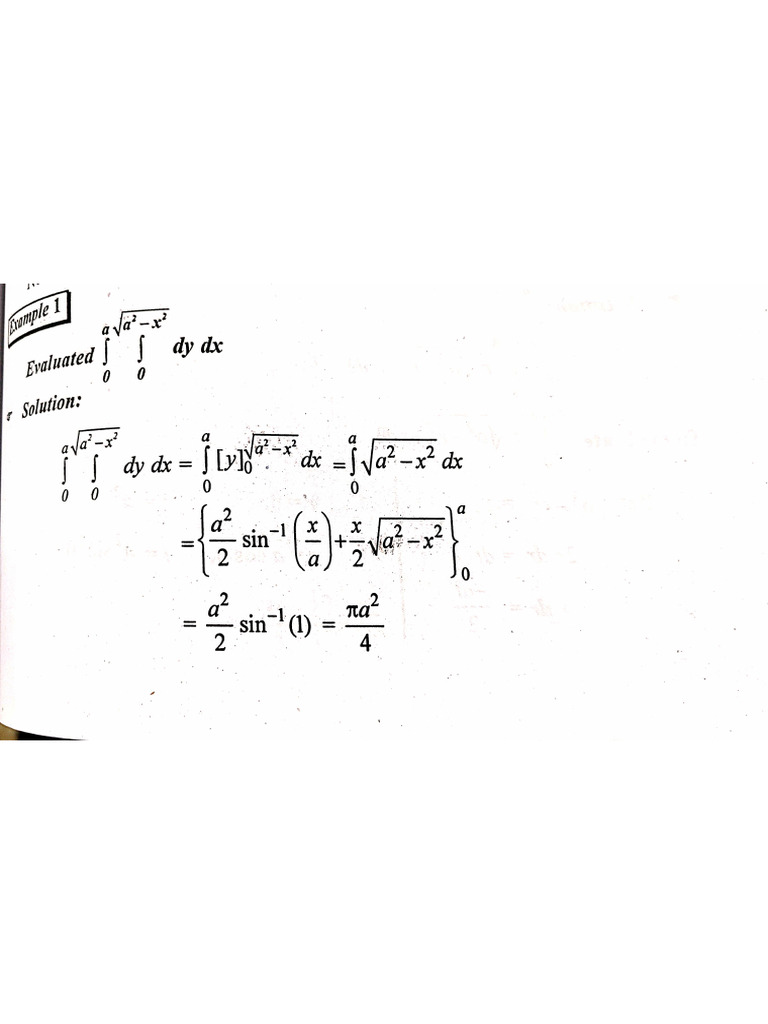 Example 1
Evaluated ∫₀ᵃ ∫₀^√(a² – x²) dy dx
Solution:
∫₀ᵃ ∫₀^√(a² – x²) dy dx = ∫₀ᵃ [y]₀^√(a² – x²) dx = ∫₀ᵃ √(a² – x²) dx
= { a²/2 sin⁻¹ (x/a) + x/2 √(a² – x²) }₀ᵃ
= a²/2 sin⁻¹ (1) = πa²/4